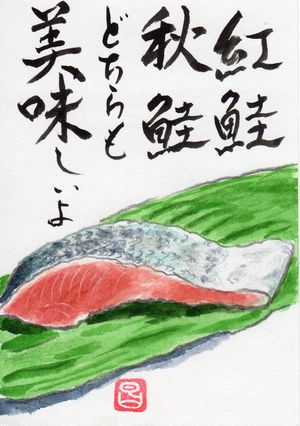 紅鮭
秋鮭
どちらも
美味しいよ